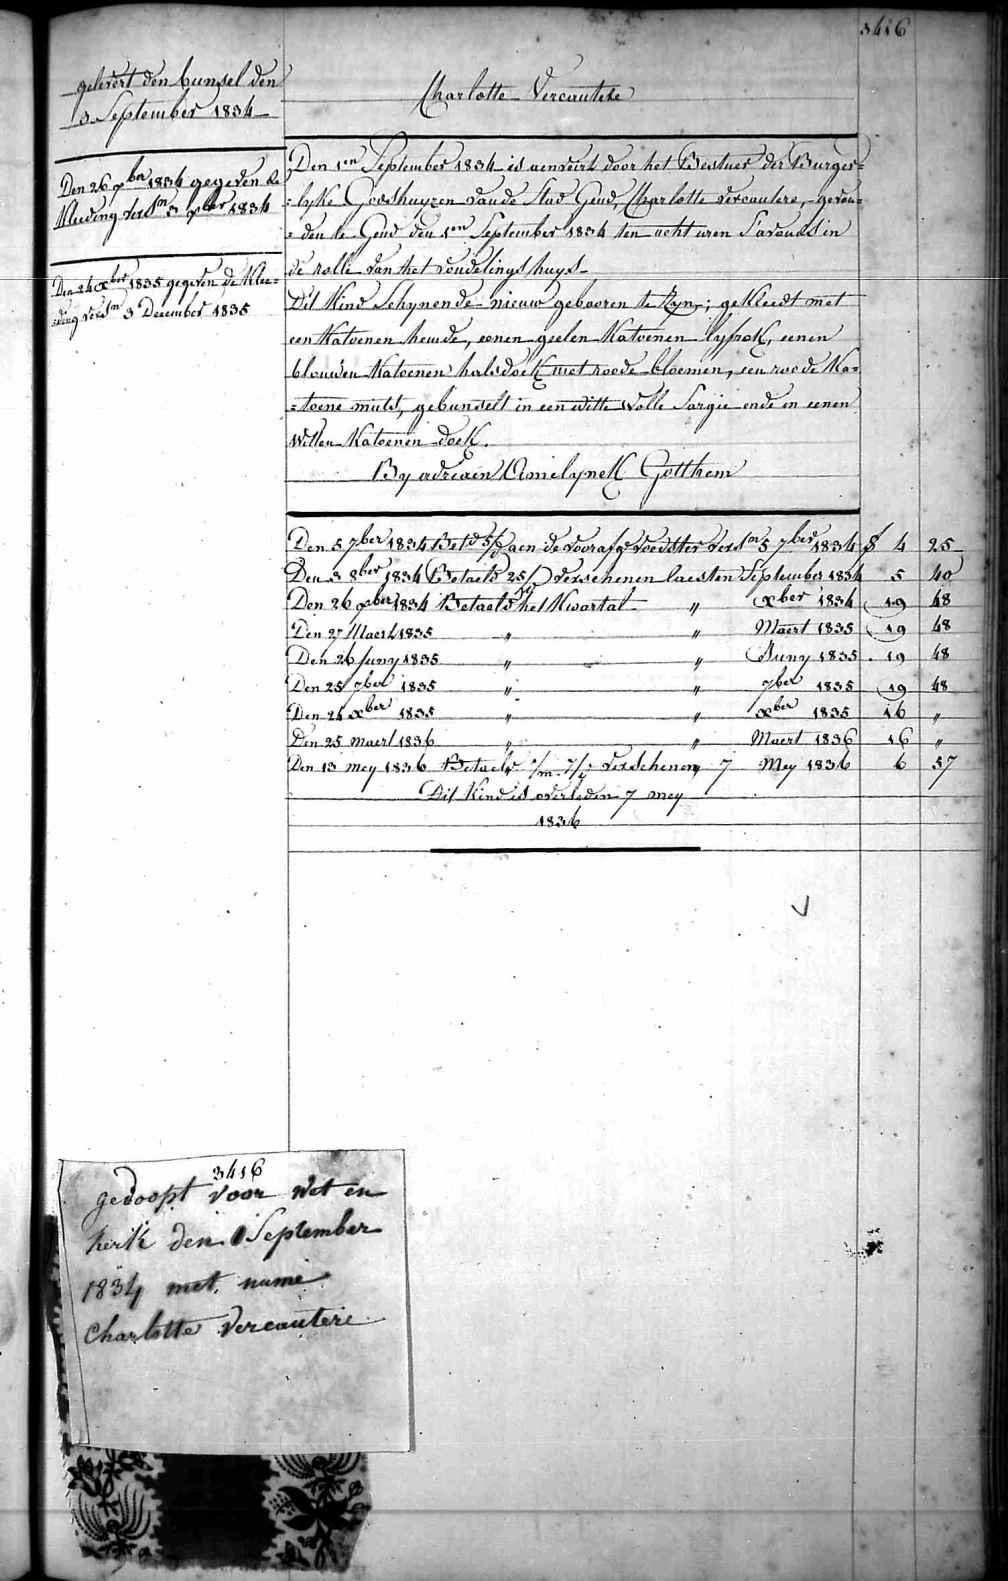 3416
gelevert den bunsel den
3 September 1834
Den 26 xber 1834 gegeven de
kleeding versn 3 xber 1834
Den 24 xber 1835 gegeven de klee=
=ding versn 3 December 1835
Charlotte Vercautere
Den 1en September 1834 is aenveirt door het Bestuer der Burger=
=lyke Godshuyzen van de Stad Gend, Charlotte Vercautere, gevon=
=den te Gend den 1en September 1834 ten acht uren S'avonds in
de rolle van het vondelingshuys
Dit Kind Schynende nieuw gebooren te Zyn; gekleedt met
een Katoenen hemde, eenen geelen Katoenen lyfrok, eenen
blouwen Katoenen halsdoek met roode bloemen, een roode Ka=
=toene muts, gebunselt in een witte Wolle Sargie ende en eenen
Witten Katoenen doek.
By adriaen Gotthem
Den 5 7ber 1834 Betd 5/d aen de voorafge voedster versn 5 7ber 1834 f 4 25
Den 3 8ber 1834 Betaelt 25/d verschenen laesten September 1834 5 40
Den 26 xber 1834 Betaelt het Kwartal " xber 1834 19 48
Den 27 Maert 1835 " " Maert 1835 19 48
Den 26 Juny 1835 " " Juny 1835 19 48
Den 25 7ber 1835 " " 7ber 1835 19 48
Den 24 xber 1835 " " xber 1835 16 "
Den 25 maert 1836 " " Maert 1836 16 "
Den 13 mey 1836 Betaelt 1/m 7/d verschenen 7 Mey 1836 6 57
Dit Kind is overleden 7 mey
1836
3416
gedoopt voor wet en
kerk den 1 September
1834 met name
Charlotte Vercautere